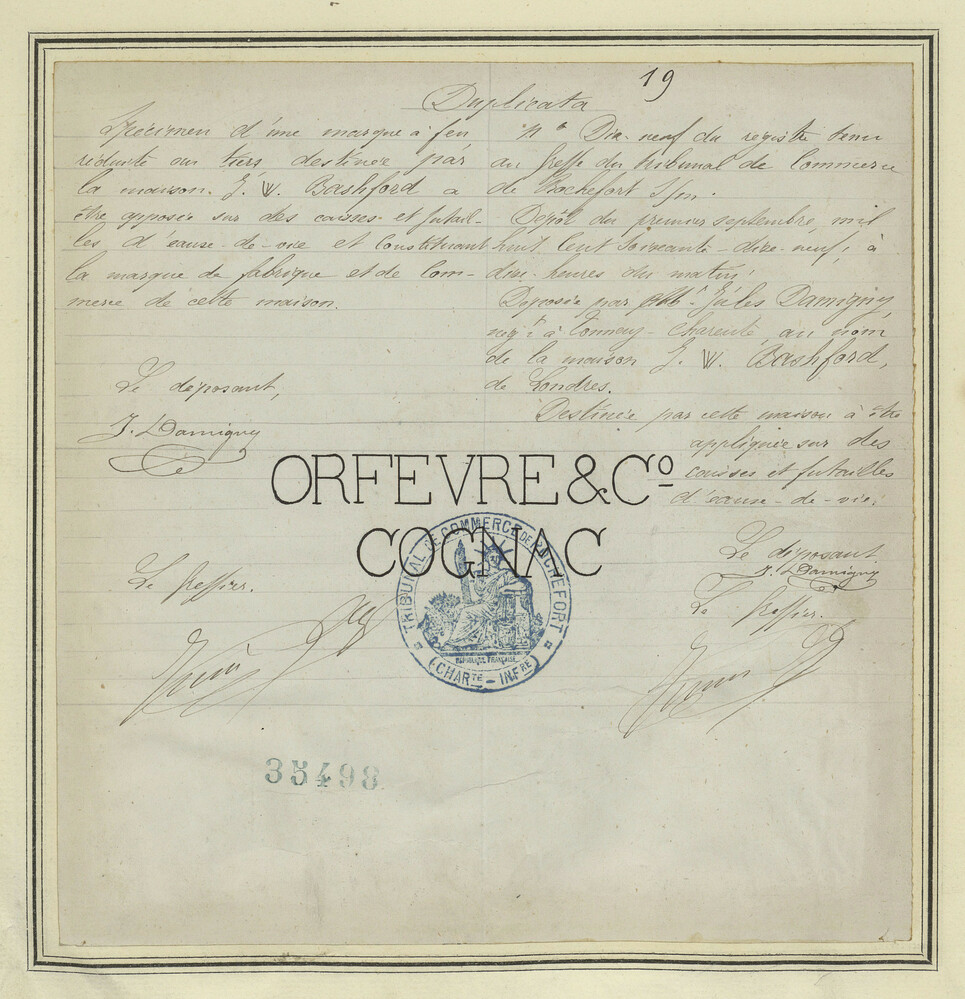 19
Duplicata
Spécimen d'une marque à feu
réduite au tiers destinée par
la maison J. W. Bashford à
être apposée sur des caisses et futail-
les d'eause-de-vie et constituant
la marque de fabrique et de Com-
merce de cette maison.
Le déposant,
J. Damigny
Le Greffier.
No Dix-neuf du registre tenu
au Greffe du tribunal de Commerce
de Rochefort s/m.
Dépôt du premier septembre, mil
huit cent soixante-dix-neuf, à
dix heures du matin;
Déposée par Mr Jules Damigny,
négt à Tonnay-Charente, au nom
de la maison J. W. Bashford,
de Londres.
Destinée par cette maison à être
appliquée sur des
caisses et futailles
d'eause-de-vie;
Le déposant
J. Damigny
Le Greffier.
ORFEVRE & Co
COGNAC
TRIBUNAL DE COMMERCE DE ROCHEFORT
RÉPUBLIQUE FRANÇAISE
(CHARTE - INFRE)
35498